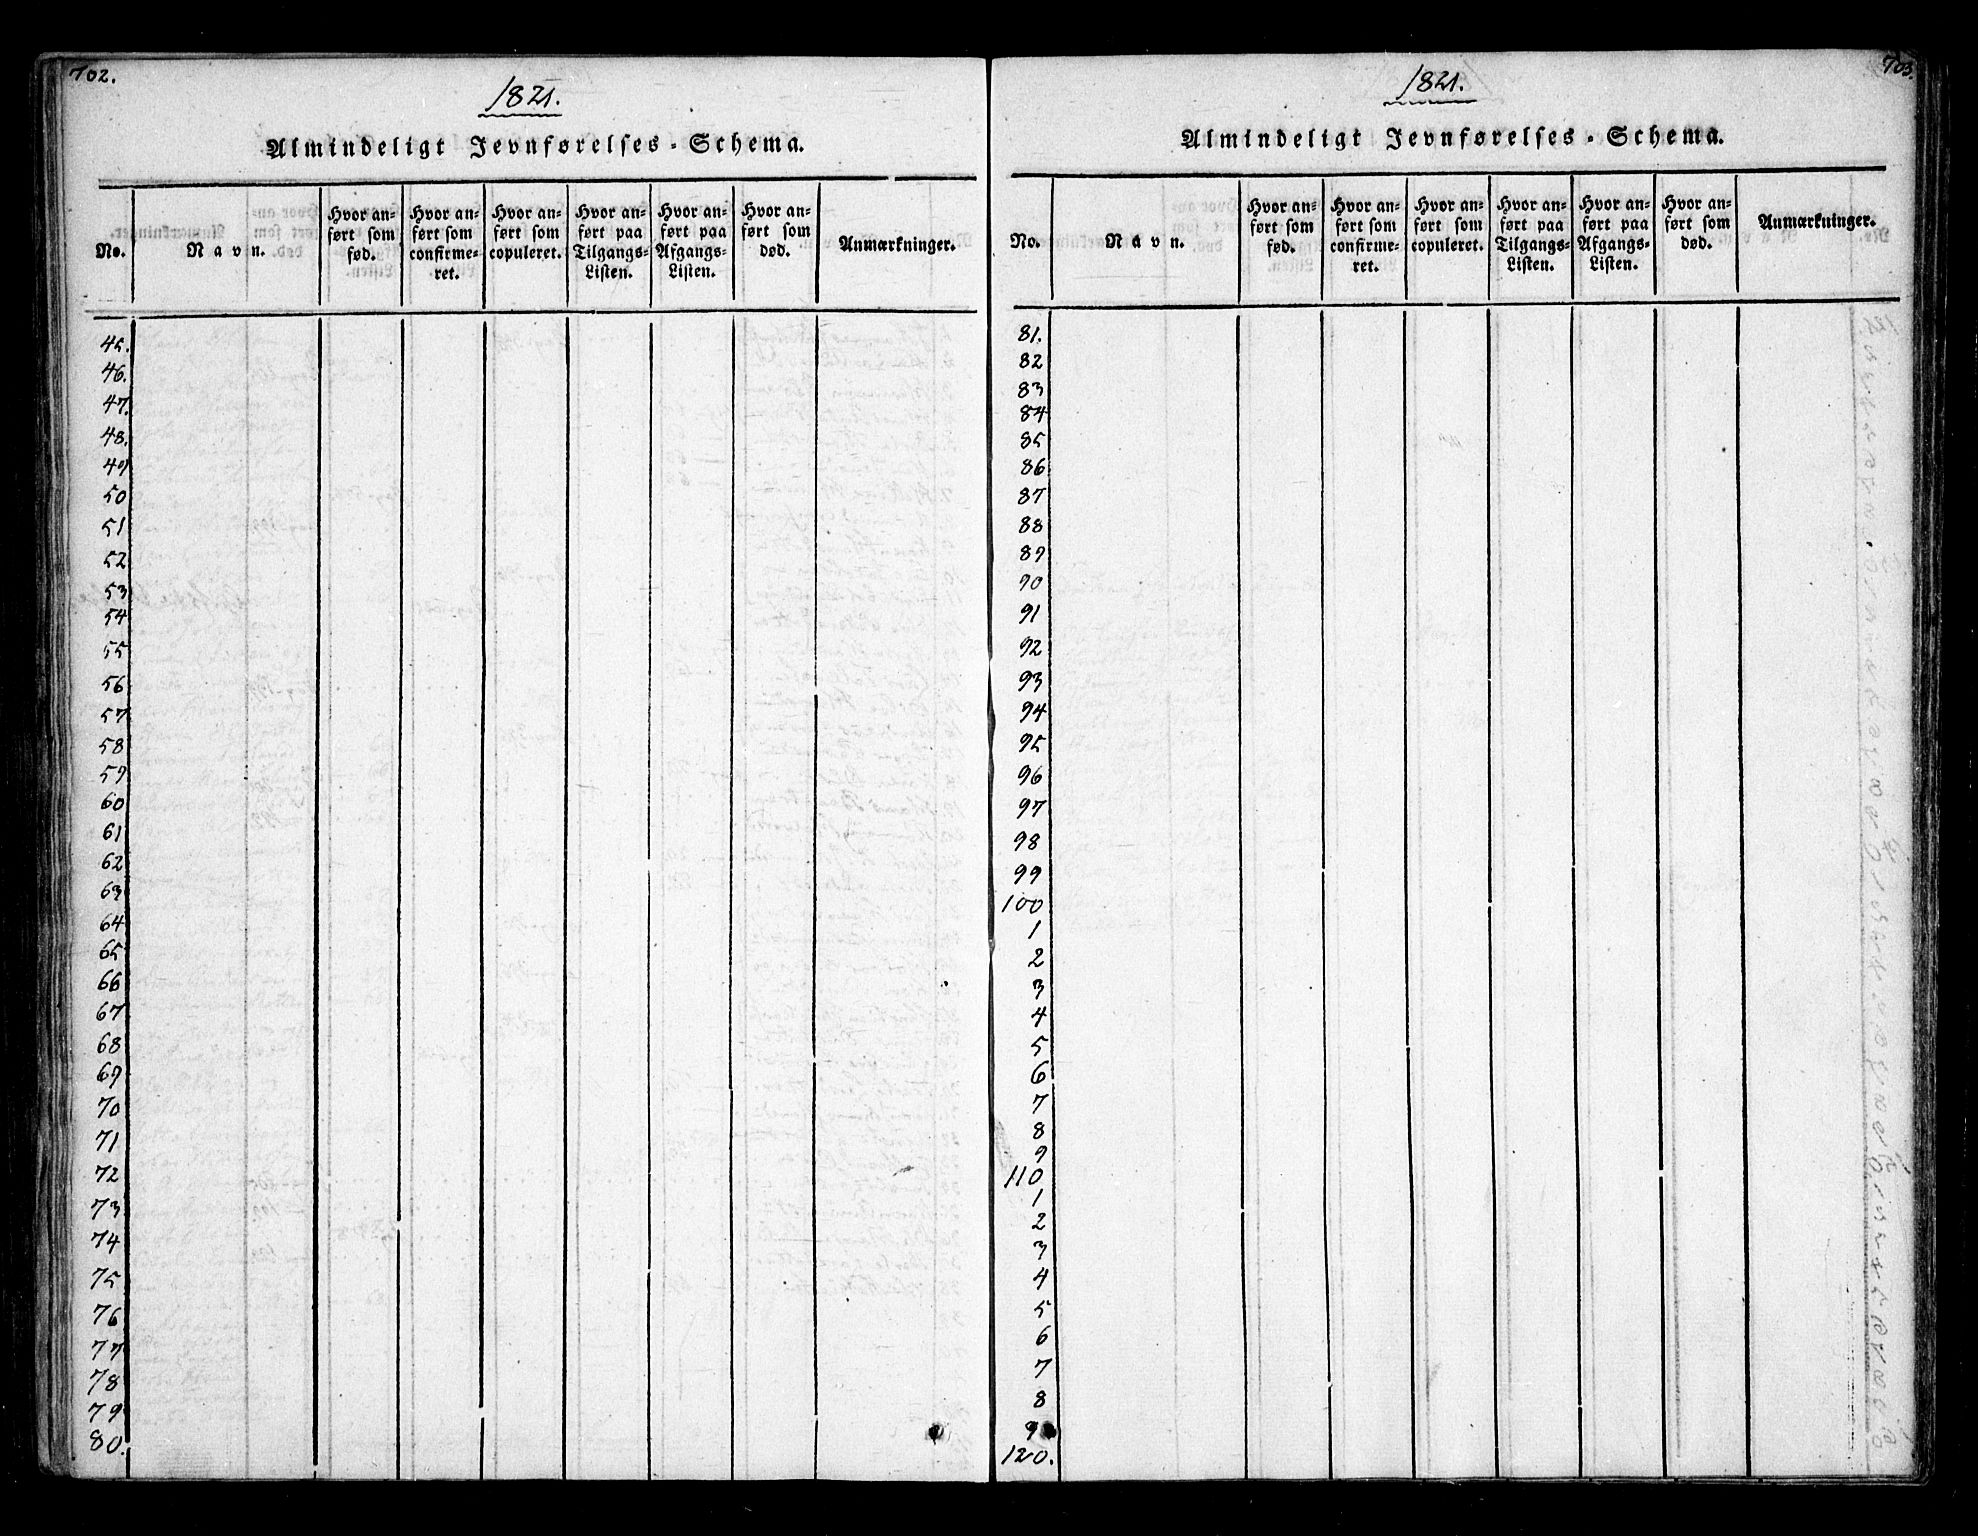 702.
1821.
Almindeligt Jevnførelses-Schema.
No. Navn. Hvor anført som fød. Hvor anført som confirmeret. Hvor anført som copuleret. Hvor anført paa Tilgangs-Listen. Hvor anført paa Afgangs-Listen. Hvor anført som død. Anmærkninger.
45.
46.
47.
48.
49
50
51
52
53
54
55
56
57
58
59
60
61
62
63
64
65
66
67
68
69
70
71
72
73
74
75
76
77
78
79
80.
703.
1821.
Almindeligt Jevnførelses-Schema.
No. Navn. Hvor anført som fød. Hvor anført som confirmeret. Hvor anført som copuleret. Hvor anført paa Tilgangs-Listen. Hvor anført paa Afgangs-Listen. Hvor anført som død. Anmærkninger.
81.
82
83
84
85
86
87
88
89
90
91
92
93
94
95
96
97
98
99
100
1
2
3
4
5
6
7
8
9
110
1
2
3
4
5
6
7
8
9
120.